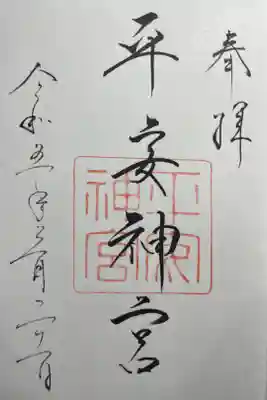 奉拝
平安神宮
平安神宮
令和五年三月二十一日